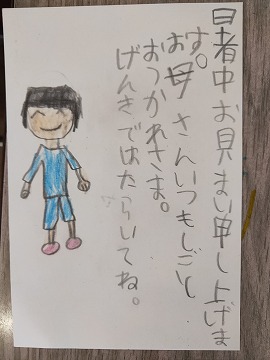 暑中お見まい申し上げま
す。
お母さんいつもしごと
おつかれさま。
げんきではたらいてね。